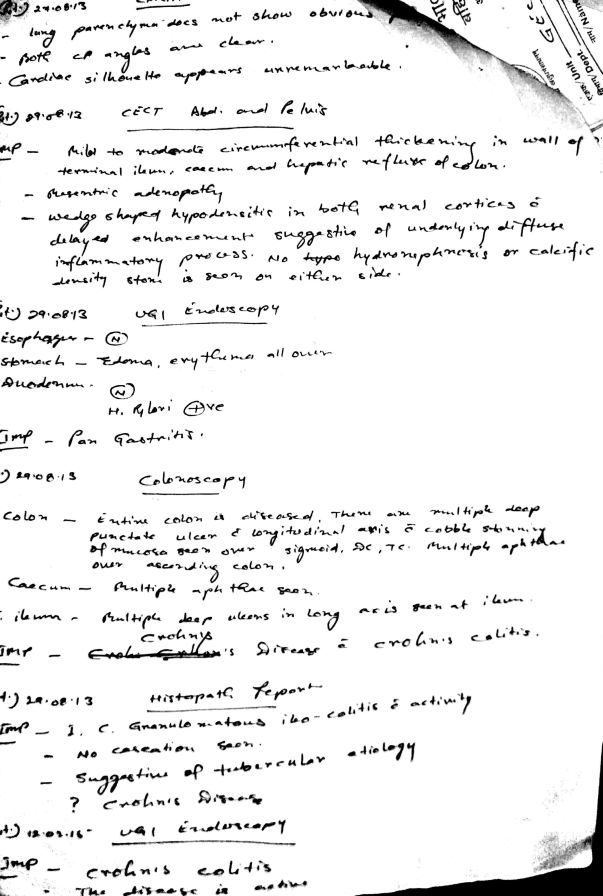 29.08.13
- Lung parenchyma does not show obvious
- Both CP angles are clear.
- Cardiac silhouette appears unremarkable.
29.08.13 CECT Abd. and Pelvis
Imp - Mild to moderate circumferential thickening in wall of
terminal ileum, caecum and hepatic reflux of colon.
- Mesentric adenopathy
- wedge shaped hypodensitis in both renal cortices c̄
delayed enhancement suggestive of underlying diffuse
inflammatory process. No hypo hydronephrosis or calcific
density stone is seen on either side.
29.08.13 UGI Endoscopy
Esophagus - (N)
Stomach - Edema, erythema all over
Duodenum. (N)
H. Pylori (+)ve
Imp - Pan Gastritis.
29.08.13 Colonoscopy
Colon - Entire colon is diseased, There are multiple deep
punctate ulcer c̄ longitudinal axis c̄ cobble stonning
of mucosa seen over sigmoid, DC, TC. Multiple aphthae
over ascending colon.
Caecum - Multiple aphthae seen.
ileum - Multiple deep ulcers in long axis seen at ileum.
Imp - Crohn's Disease c̄ crohn's colitis.
29.08.13 Histopath Report
Imp - I. C. Granulomatous ileo-colitis c̄ activity
- No caseation seen.
- Suggestive of tubercular etiology
? Crohn's Disease
UGI Endoscopy
Imp - crohn's colitis
- The disease is active